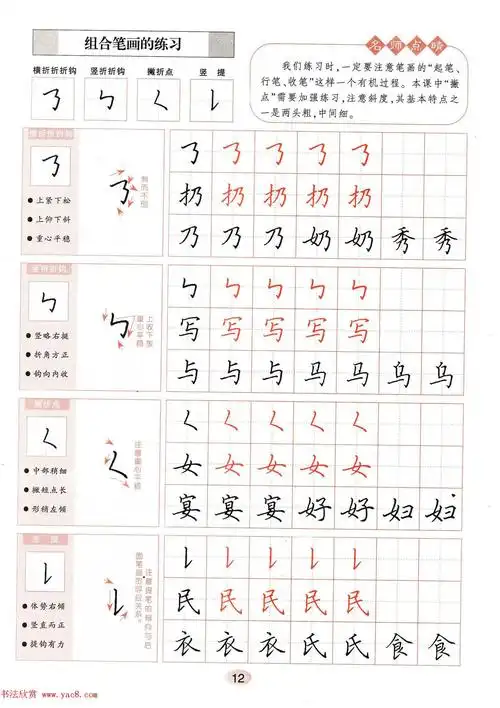 组合笔画的练习
横折折折钩 竖折折钩 撇折点 竖提
名师点睛
我们练习时,一定要注意笔画的“起笔、
行笔、收笔”这样一个有机过程。本课中“撇
点”需要加强练习,注意斜度,其基本特点之
一是两头粗,中间细。
横折折折钩
上紧下松
上仰下斜
重心平稳
扔 扔 扔 扔 扔
乃 乃 乃 奶 奶 秀 秀
竖折折钩
上收下放
重心平稳
竖略右挺
折角方正
钩向内收
写 写 写 写 写
与 与 与 马 马 乌 乌
撇折点
注意重心平稳
中部稍细
撇短点长
形稍左倾
女 女 女 女 女
宴 宴 宴 好 好 妇 妇
竖提
注意提笔的倾向与后
面笔画的呼应关系。
体势右倾
竖直而正
提钩有力
民 民 民 民 民
衣 衣 衣 氏 氏 食 食
12
书法欣赏 www.yac8.com